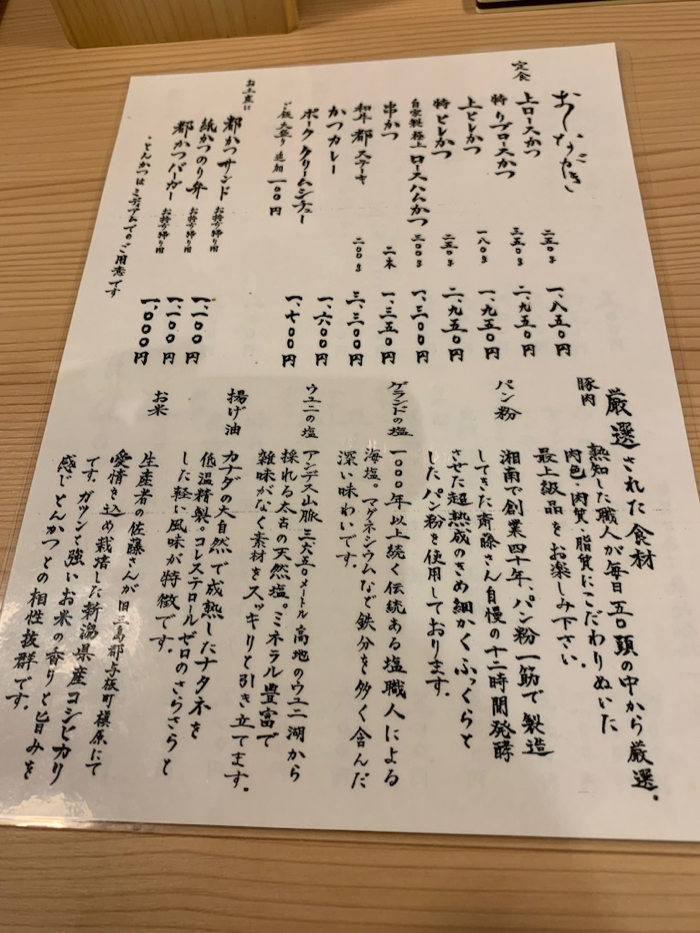 おしながき
定食
上ロースかつ 二五〇g 一、八五〇円
特リブロースかつ 三五〇g 二、九五〇円
上ヒレかつ 一八〇g 一、九五〇円
特ヒレかつ 二五〇g 二、九五〇円
自家製極上ロースハムかつ 二〇〇g 一、三〇〇円
串かつ 二本 一、三五〇円
和牛都ステーキ 二〇〇g 三、三〇〇円
かつカレー 一、六〇〇円
ポーククリームシチュー 一、七〇〇円
ご飯大盛り追加一〇〇円
お土産に
都かつサンド お持ち帰り用 一、二〇〇円
紙かつのり弁 お持ち帰り用 一、一〇〇円
都かつバーガー お持ち帰り用 一、〇〇〇円
・とんかつはミディアムでのご用意です
厳選された食材
豚肉
熟知した職人が毎日五〇頭の中から厳選。
肉色・肉質・脂質にこだわりぬいた
最上級品をお楽しみ下さい。
パン粉
湘南で創業四十年、パン粉一筋で製造
してきた斎藤さん自慢の十二時間発酵
させた超熟成のきめ細かくふっくらと
したパン粉を使用しております。
ゲランドの塩
一〇〇〇年以上続く伝統ある塩職人による
海塩。マグネシウムなど鉄分を多く含んだ
深い味わいです。
ウユニの塩
アンデス山脈三六五〇メートル高地のウユニ湖から
採れる太古の天然塩。ミネラル豊富で
雑味がなく素材をスッキリと引き立てます。
揚げ油
カナダの大自然で成熟したナタネを
低温精製。コレステロールゼロのさらさらと
した軽い風味が特徴です。
お米
生産者の佐藤さんが旧三島郡与板町槙原にて
愛情を込め栽培した新潟県産コシヒカリ
です。ガツンと強いお米の香りと旨みを
感じとんかつとの相性抜群です。